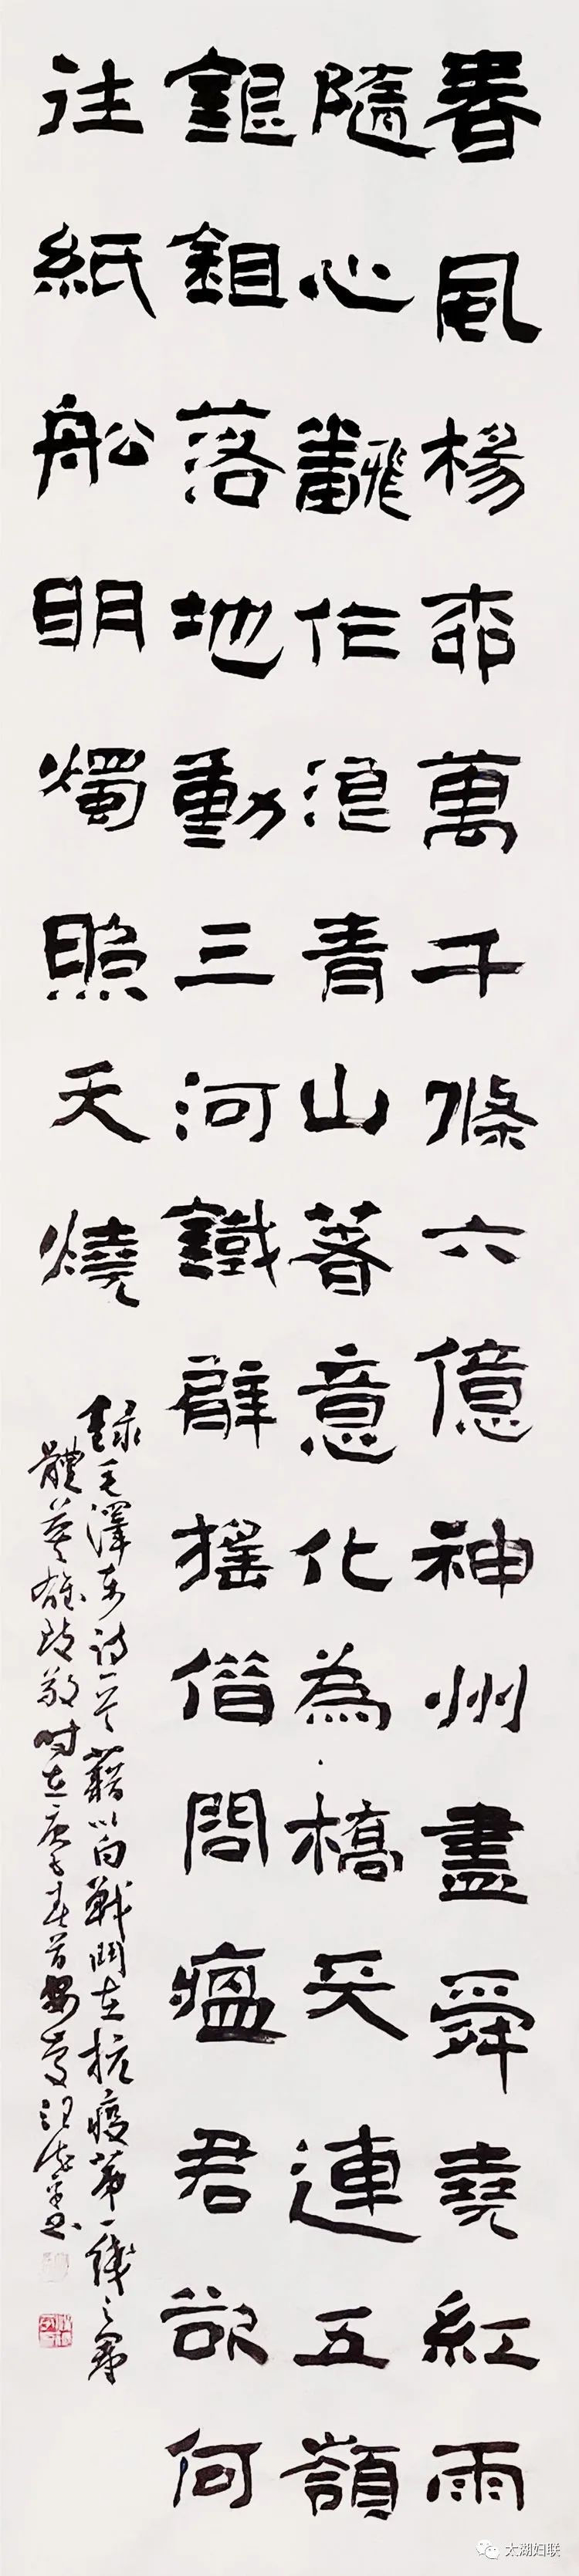 春風楊柳萬千條六億神州盡舜堯紅雨
隨心飜作浪青山著意化為橋天連五嶺
銀鉏落地動三河鐵臂搖借問瘟君欲何
往紙舩明燭照天燒
錄毛澤東詩一首藉以向戰鬥在抗疫第一線之羣
體英雄致敬時在庚子春首安慶汪
太湖妇联